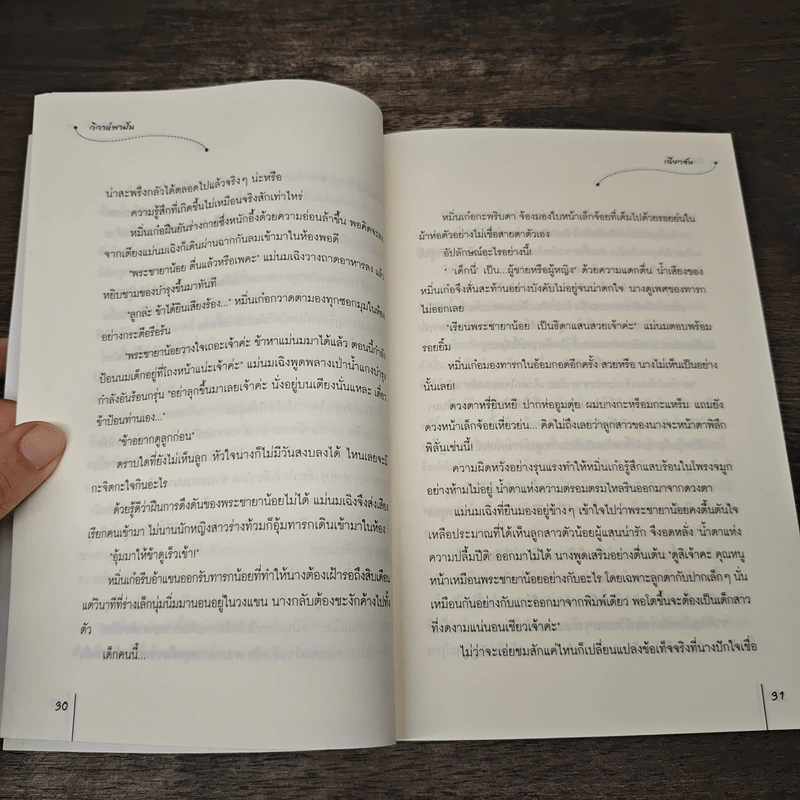 วิวาห์พาฝัน
น่าสะพรึงกลัวได้ตลอดไปแล้วจริงๆ น่ะหรือ
ความรู้สึกที่เกิดขึ้นไม่เหมือนจริงสักเท่าไหร่
หมิ่นเก๋อฝืนยันร่างกายซึ่งหนักอึ้งด้วยความอ่อนล้าขึ้น พอคิดจะลง
จากเตียงแม่นมเฉิงก็เดินผ่านฉากกันลมเข้ามาในห้องพอดี
"พระชายาน้อย ตื่นแล้วหรือเพคะ" แม่นมเฉิงวางถาดอาหารลง แล้ว
หยิบชามของบำรุงขึ้นมาทันที
"ลูกล่ะ ข้าได้ยินเสียงร้อง..." หมิ่นเก๋อกวาดตามองทุกซอกมุมในห้อง
อย่างกระตือรือร้น
"พระชายาน้อยวางใจเถอะเจ้าค่ะ ข้าหาแม่นมมาได้แล้ว ตอนนี้กำลัง
ป้อนนมเด็กอยู่ที่โถงหน้าแน่ะเจ้าค่ะ" แม่นมเฉิงพูดพลางเป่าน้ำแกงบำรุง
กำลังอันร้อนกรุ่น "อย่าลุกขึ้นมาเลยเจ้าค่ะ นั่งอยู่บนเตียงนั่นแหละ เดี๋ยว
ข้าป้อนท่านเอง..."
"ข้าอยากดูลูกก่อน"
ตราบใดที่ยังไม่เห็นลูก หัวใจนางก็ไม่มีวันสงบลงได้ ไหนเลยจะมี
กะจิตกะใจกินอะไร
ด้วยรู้ดีว่าฝืนการดึงดันของพระชายาน้อยไม่ได้ แม่นมเฉิงจึงส่งเสียง
เรียกคนเข้ามา ไม่นานนักหญิงสาวร่างท้วมก็อุ้มทารกเดินเข้ามาในห้อง
"อุ้มมาให้ข้าดูเร็วเข้า!"
หมิ่นเก๋อรีบอ้าแขนออกรับทารกน้อยที่ทำให้นางต้องเฝ้ารอถึงสิบเดือน
แต่วินาทีที่ร่างเล็กนุ่มนิ่มมานอนอยู่ในวงแขน นางกลับต้องชะงักค้างไปทั้ง
ตัว
เด็กคนนี้...
30
เฉียวอัน
หมิ่นเก๋อกะพริบตา จ้องมองใบหน้าเล็กจ้อยที่เต็มไปด้วยรอยย่นใน
ผ้าห่อตัวอย่างไม่เชื่อสายตาตัวเอง
อัปลักษณ์อะไรอย่างนี้!
"'เด็กนี่' เป็น...ผู้ชายหรือผู้หญิง" ด้วยความแตกตื่น น้ำเสียงของ
หมิ่นเก๋อจึงสั่นสะท้านอย่างบังคับไม่อยู่จนน่าตกใจ นางดูเพศของทารก
ไม่ออกเลย
"เรียนพระชายาน้อย เป็นธิดาแสนสวยเจ้าค่ะ" แม่นมตอบพร้อม
รอยยิ้ม
หมิ่นเก๋อมองทารกในอ้อมกอดอีกครั้ง สวยหรือ นางไม่เห็นเป็นอย่าง
นั้นเลย!
ดวงตาหรี่ยิบหยี ปากห่ออูมตุ่ย ผมบางกะหร็อมกะแหร็ม แถมยัง
ดวงหน้าเล็กจ้อยเหี่ยวย่น... คิดไม่ถึงเลยว่าลูกสาวของนางจะหน้าตาพิลึก
พิลั่นเช่นนี้!
ความผิดหวังอย่างรุนแรงทำให้หมิ่นเก๋อรู้สึกแสบร้อนในโพรงจมูก
อย่างห้ามไม่อยู่ น้ำตาแห่งความตรอมตรมไหลรินออกมาจากดวงตา
แม่นมเฉิงที่ยืนมองอยู่ข้างๆ เข้าใจไปว่าพระชายาน้อยคงตื้นตันใจ
เหลือประมาณที่ได้เห็นลูกสาวตัวน้อยผู้แสนน่ารัก จึงอดหลั่ง 'น้ำตาแห่ง
ความปลื้มปีติ' ออกมาไม่ได้ นางพูดเสริมอย่างตื่นเต้น "ดูสิเจ้าคะ คุณหนู
หน้าเหมือนพระชายาน้อยอย่างกับอะไร โดยเฉพาะลูกตากับปากเล็กๆ นั่น
เหมือนกันอย่างกับแกะออกมาจากพิมพ์เดียว พอโตขึ้นจะต้องเป็นเด็กสาว
ที่งดงามแน่นอนเชียวเจ้าค่ะ"
ไม่ว่าจะเอ่ยชมสักแค่ไหนก็เปลี่ยนแปลงข้อเท็จจริงที่นางปักใจเชื่อ
31